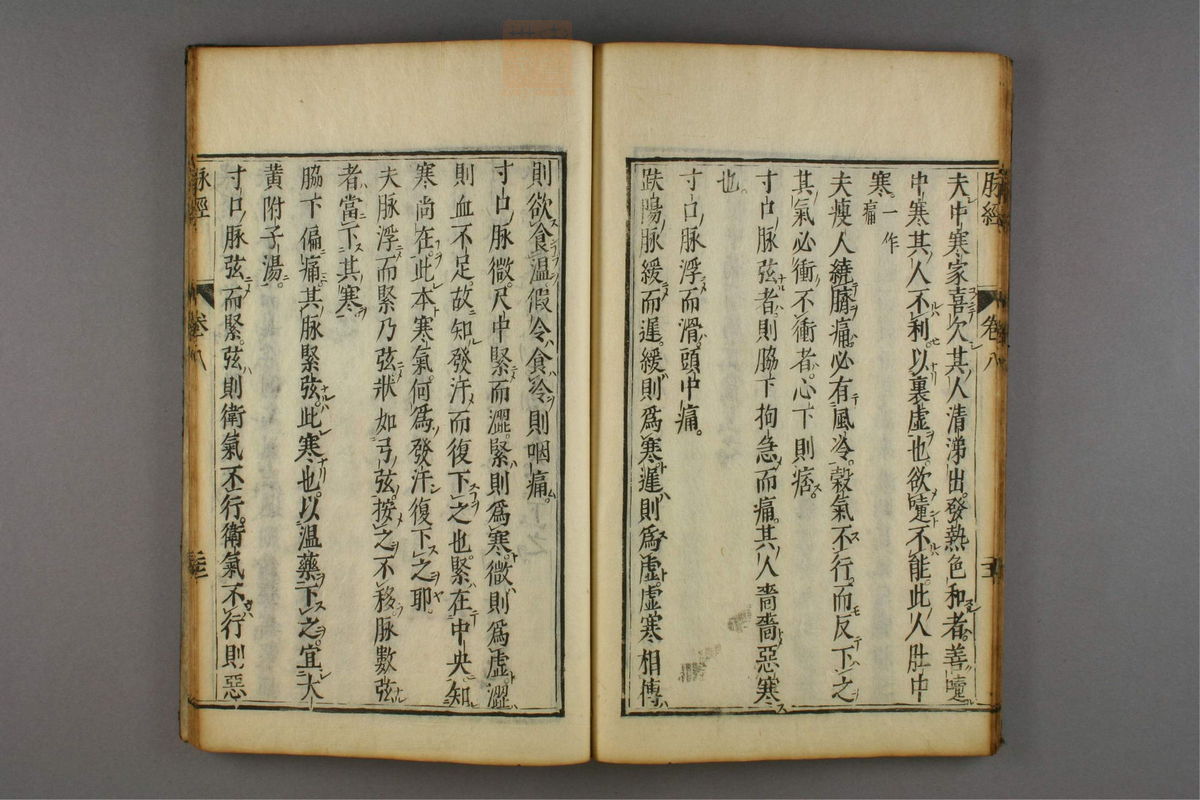 脉經 卷八
夫中寒家喜欠其人清涕出發熱色和者善嚔
中寒其人不利以裏虛也欲嚔不能此人肚中
寒一作痛
夫瘦人繞臍痛必有風冷穀氣不行而反下之
其氣必衝不衝者心下則痞
寸口脉弦者則脇下拘急而痛其人嗇嗇惡寒
也
寸口脉浮而滑頭中痛
趺陽脉緩而遲緩則爲寒遲則爲虛虛寒相摶
則欲食温假令食冷則咽痛
寸口脉微尺中緊而澀緊則爲寒微則爲虛澀
則血不足故知發汗而復下之也緊在中央知
寒尚在此本寒氣何爲發汗復下之耶
夫脉浮而緊乃弦狀如弓弦按之不移脉數弦
者當下其寒
脇下偏痛其脉緊弦此寒也以温藥下之宜大
黄附子湯
寸口脉弦而緊弦則衛氣不行衛氣不行則惡
脉經 卷八